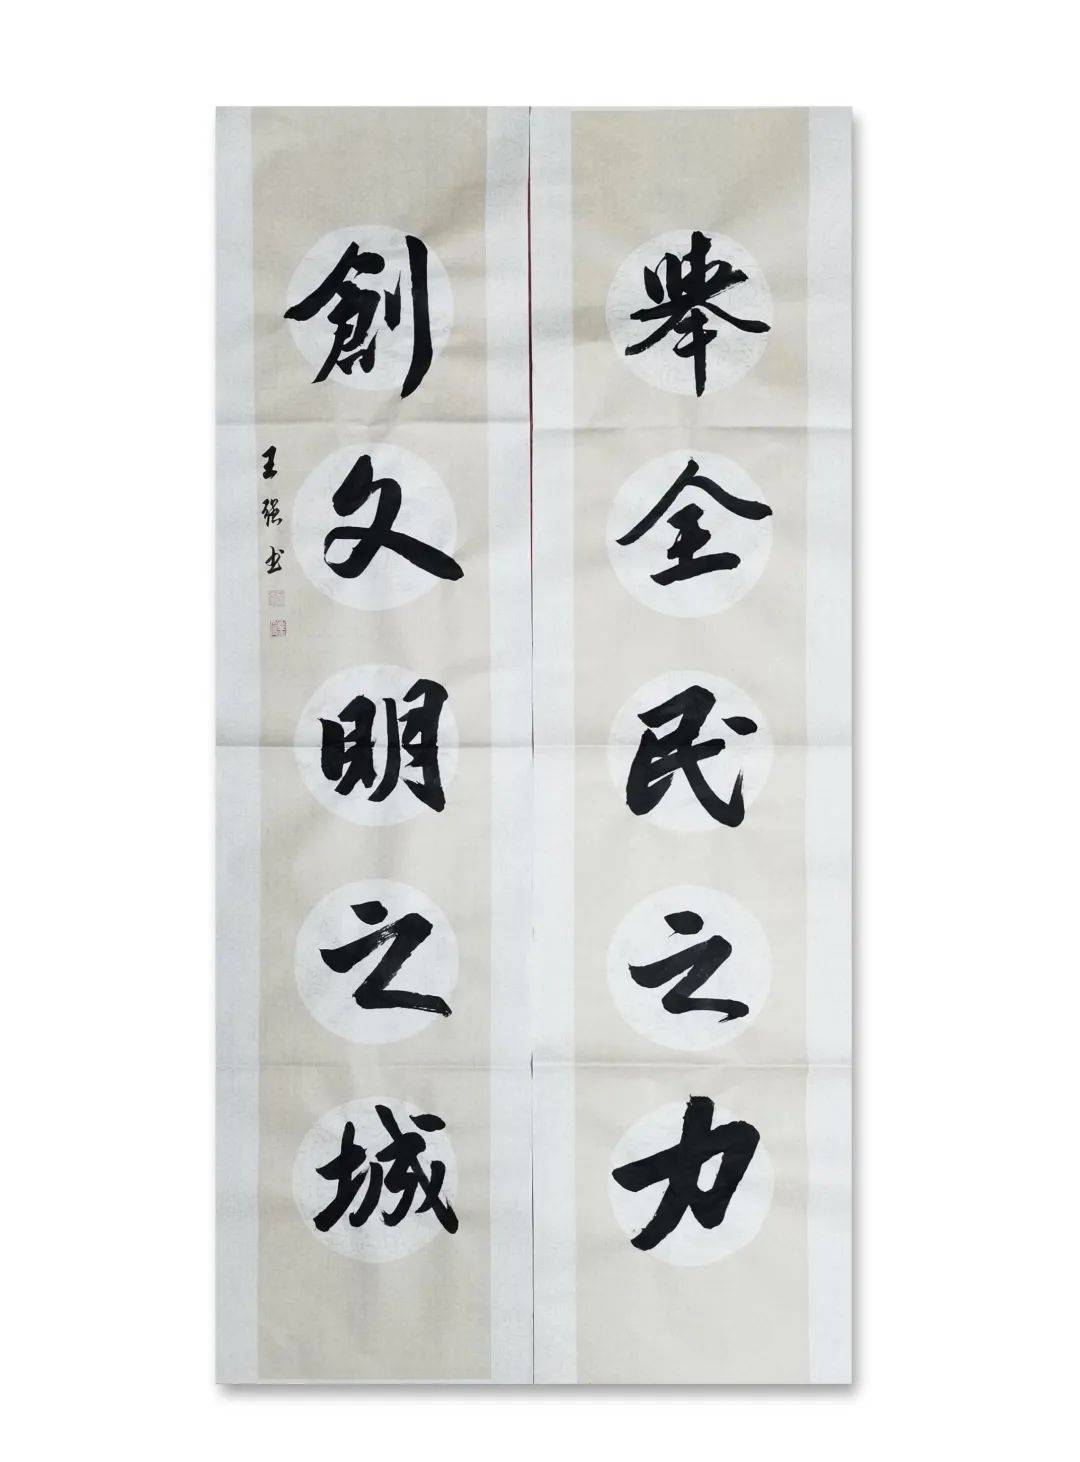 舉全民之力
創文明之城
王强书